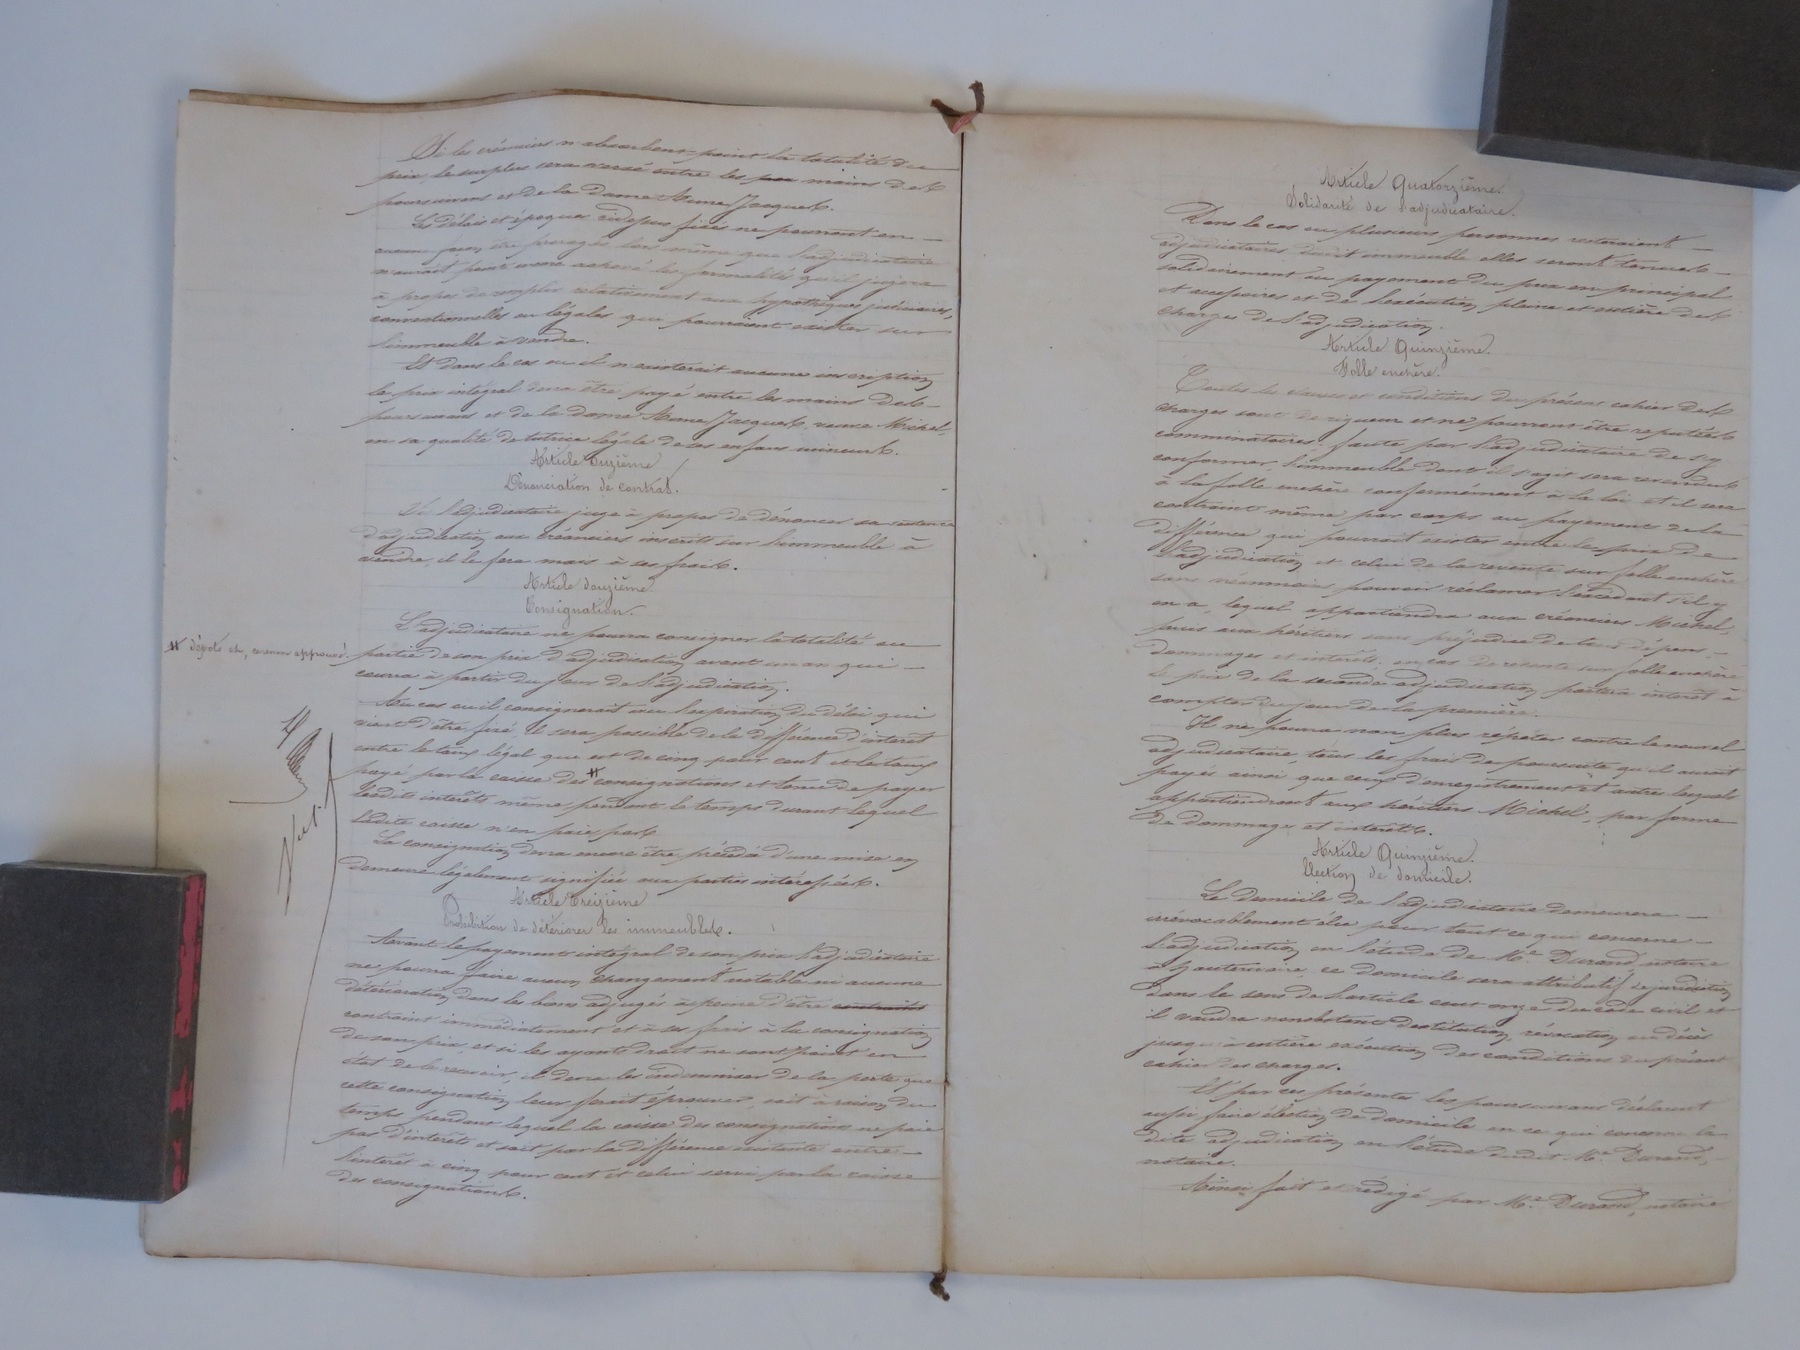 Si les créanciers n'absorbent point la totalité du
prix, le surplus sera versé entre les pou mains des
poursuivans et de la Dame Anne Jacques.
Les délais et époques ci-dessus fixés ne pourront en
aucune façon être prorogés lors même que l'adjudicataire
n'aurait point encore achevé les formalités qu'il jugera
à propos de remplir relativement aux hypothèques judiciaires,
conventionnelles ou légales qui pourraient exister sur
l'immeuble à vendre.
Et dans le cas ou il n'existerait aucune inscription
le prix intégral devra être payé entre les mains des
poursuivans et de la dame Anne Jacques, veuve Michel,
en sa qualité de tutrice légale de ses enfans mineurs.
Article Onzième
Dénonciation de contrat.
Si l'adjudicataire juge à propos de dénoncer sa sentence
d'adjudication aux créanciers inscrits sur l'immeuble à
vendre, il le fera mais à ses frais.
Article douzième
Consignation.
L'adjudicataire ne pourra consigner la totalité ou
partie de son prix d'adjudication avant un an qui
courra à partir du jour de l'adjudication.
Au cas ou il consignerait avec l'expiration du délai qui
vient d'être fixé, il sera passible de la différence d'intérêt
entre le taux légal qui est de cinq pour cent et le taux
payé par la caisse des # consignations et tenu de payer
lesdits intérêts même pendant le temps durant lequel
ladite caisse n'en paie pas.
# dépôts et, renvoi approuvé.
La consignation devra encore être précédée d'une mise en
demeure légalement signifiée aux parties intéressées.
Article Treizième
Prohibition de détériorer les immeubles.
Avant le payement intégral de son prix l'adjudicataire
ne pourra faire aucun changement notable ni aucune
détérioration dans les biens adjugés à peine d'être contraint
contraint immédiatement et à ses frais à la consignation
de son prix, et si les ayants droit ne sont point en
état de le recevoir, il devra les indemniser de la perte que
cette consignation leur ferait éprouver, soit à raison du
temps pendant lequel la caisse des consignations ne paie
pas d'intérêts et soit par la différence existante entre
l'intérêt à cinq pour cent et celui servi par la caisse
des consignations.
Article Quatorzième.
Solidarité de l'adjudicataire.
Dans le cas ou plusieurs personnes resteraient
adjudicataires dudit immeuble elles seront tenues
solidairement au payement du prix en principal
et accessoires et de l'exécution pleine et entière des
charges de l'adjudication.
Article Quinzième.
Folle enchère.
Toutes les clauses et conditions du présent cahier des
charges sont de rigueur et ne pourront être reputées
comminatoires, faute par l'adjudicataire de s'y
conformer, l'immeuble dont il s'agit sera revendu
à la folle enchère conformément à la loi et il sera
contraint même par corps au payement de la
différence qui pourrait exister entre le prix de
l'adjudication et celui de la revente sur folle enchère
sans néanmoins pouvoir réclamer l'excédant s'il y
en a, lequel appartiendra aux créanciers Michel,
puis aux héritiers sans préjudice de tous dépens,
dommages et intérêts. en cas de revente sur folle enchère
le prix de la seconde adjudication portera intérêt à
compter du jour de la première.
Il ne pourra non plus répéter contre le nouvel
adjudicataire, tous les frais de poursuite qu'il aurait
payés ainsi que ceux d'enregistrement et autres lesquels
appartiendront aux héritiers Michel, par forme
de dommages et intérêts.
Article Quinzième.
Election de domicile.
Le domicile de l'adjudicataire demeurera
irrévocablement élu pour tout ce qui concerne
l'adjudication en l'étude de Me. Durand, notaire
à ce domicile sera attributif de juridiction
dans le sens de l'article cent onze du code civil et
il vaudra nonobstant destitution, révocation ou décès
jusqu'à entière exécution des conditions du présent
cahier des charges.
Et par ces présentes les poursuivans déclarent
aussi faire élection de domicile en ce qui concerne la
dite adjudication en l'étude dudit Me. Durand,
notaire.
Ainsi fait et rédigé par Me. Durand, notaire